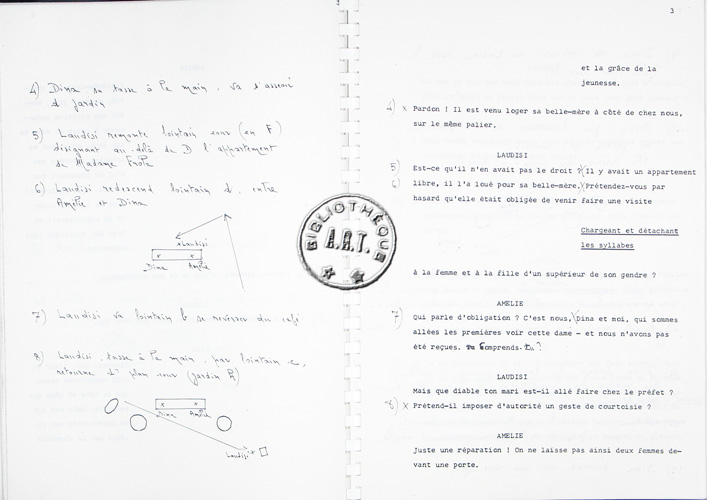 4) Dina, sa tasse à la main, va s'asseoir
d jardin
5) Laudisi remonte lointain cour (en F)
désignant au-delà de D l'appartement
de Madame Frola
6) Laudisi redescend lointain d, entre
Amélie et Dina
x Laudisi
x x
Dina Amélie
7) Laudisi va lointain b se reverser du café
8) Laudisi, tasse à la main, par lointain c,
retourne 1er plan cour (jardin R)
x x
Dina Amélie
Laudisi x
BIBLIOTHÈQUE
A.R.T.
3
et la grâce de la
jeunesse.
4) x Pardon ! Il est venu loger sa belle-mère à côté de chez nous,
sur le même palier.
LAUDISI
5) Est-ce qu'il n'en avait pas le droit ? Il y avait un appartement
6) libre, il l'a loué pour sa belle-mère. Prétendez-vous par
hasard qu'elle était obligée de venir faire une visite
Chargeant et détachant
les syllabes
à la femme et à la fille d'un supérieur de son gendre ?
AMELIE
7) Qui parle d'obligation ? C'est nous, Dina et moi, qui sommes
allées les premières voir cette dame - et nous n'avons pas
été reçues. Comprends-tu ?
LAUDISI
Mais que diable ton mari est-il allé faire chez le préfet ?
8) x Prétend-il imposer d'autorité un geste de courtoisie ?
AMELIE
Juste une réparation ! On ne laisse pas ainsi deux femmes de-
vant une porte.